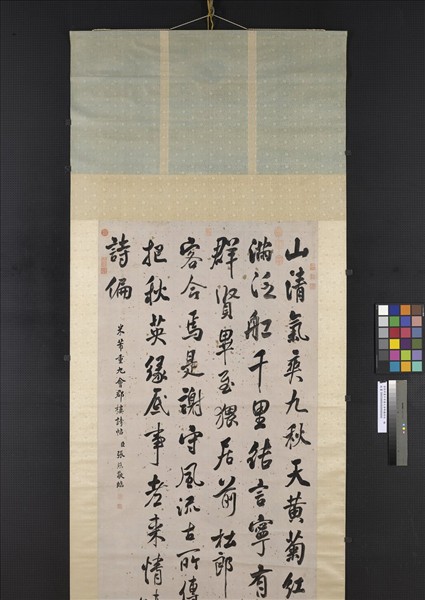 山清氣爽九秋天黃菊紅
滿泛舡千里結言寧有
群賢畢至猥居前杜郎
客今焉是謝守風流古所傳
把秋英緣底事老來情
詩偏
米芾重九會郡樓詩帖 臣張照敬臨